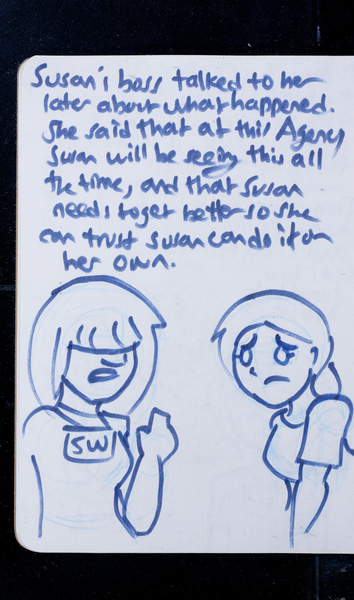 Susan's boss talked to her
later about what happened.
She said that at this Agency
Susan will be seeing this all
the time, and that Susan
needs to get better so she
can trust Susan can do it on
her own.
SW